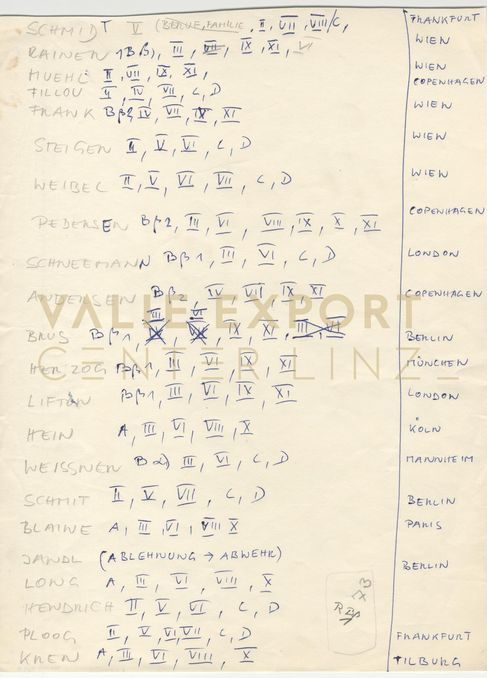 SCHMIDT V (BERUF, FAMILIE, II, VII, VIII/C, FRANKFURT
RAINER 1Bβ), III, VII, IX, XI, VI WIEN
MUEHL II, VII, IX, XI, WIEN
FILLOU II, IV, VII, C, D COPENHAGEN
FRANK Bβ2, IV, VII, IX, XI WIEN
STEIGER II, V, VI, C, D WIEN
WEIBEL II, V, VI, VII, C, D WIEN
PEDERSEN Bβ2, III, VI, VIII, IX, X, XI COPENHAGEN
SCHNEEMANN Bβ1, III, VI, C, D LONDON
ANDERSEN Bβ2, IV, VII, IX, XI COPENHAGEN
VALIE EXPORT
III VI
BRUS Bβ1, IX, XI, III, VI BERLIN
HERZOG Bβ1, III, VI, IX, XI MÜNCHEN
CENTER LINZ
LIFTON Bβ1, III, VI, IX, XI LONDON
HEIN A, III, VI, VIII, X KÖLN
WEISSNER Bα) III, VI, C, D MANNHEIM
SCHMIT II, V, VII, C, D BERLIN
BLAINE A, III, VI, VIII X PARIS
JANDL (ABLEHNUNG → ABWEHR) BERLIN
LONG A, III, VI, VIII, X
HENDRICH II, V, VI, C, D
PLOOG II, V, VI, VII, C, D FRANKFURT
KREN A, III, VI, VIII, X TILBURG